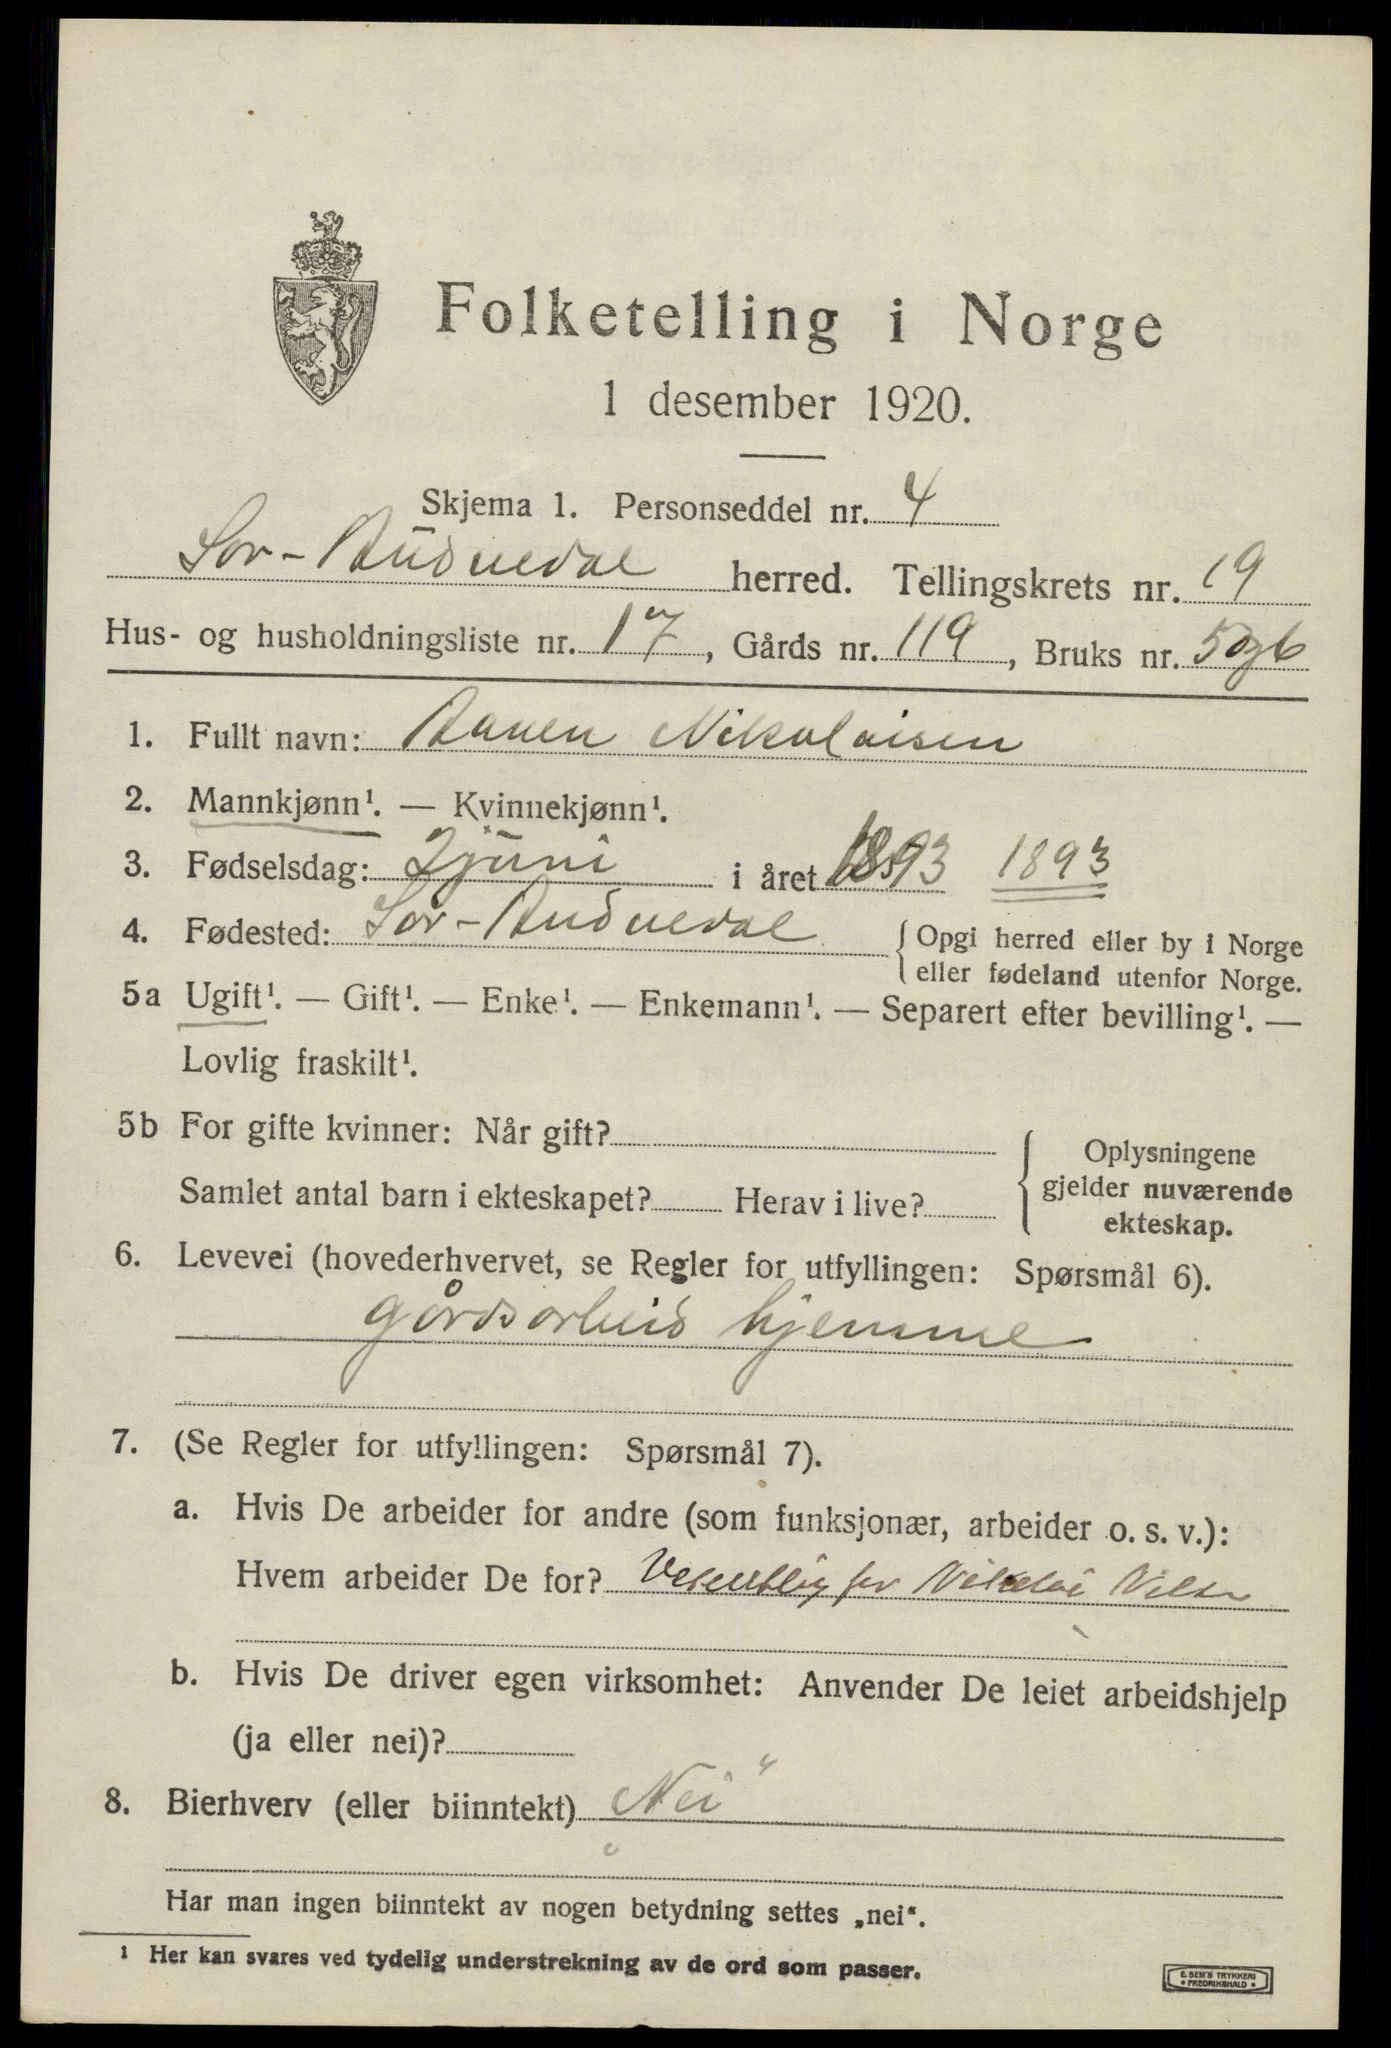 Folketelling i Norge
1 desember 1920.
Skjema 1. Personseddel nr. 4
Sør-Audnedal herred. Tellingskrets nr. 19
Hus- og husholdningsliste nr. 17, Gårds nr. 119, Bruks nr. 5og6
1. Fullt navn: Aanen Nikolaisen
2. Mannkjønn¹. — Kvinnekjønn¹.
3. Fødselsdag: 2 juni i året 1893 1893
4. Fødested: Sør-Audnedal { Opgi herred eller by i Norge
eller fødeland utenfor Norge.
5a Ugift¹. — Gift¹. — Enke¹. — Enkemann¹. — Separert efter bevilling¹. —
Lovlig fraskilt¹.
5b For gifte kvinner: Når gift?
Samlet antal barn i ekteskapet? Herav i live?
Oplysningene
gjelder nuværende
ekteskap.
6. Levevei (hovederhvervet, se Regler for utfyllingen: Spørsmål 6).
gårdsarbeid hjemme
7. (Se Regler for utfyllingen: Spørsmål 7).
a. Hvis De arbeider for andre (som funksjonær, arbeider o. s. v.):
Hvem arbeider De for? for Nikolai
b. Hvis De driver egen virksomhet: Anvender De leiet arbeidshjelp
(ja eller nei)?
8. Bierhverv (eller biinntekt) „Nei“
Har man ingen biinntekt av nogen betydning settes „nei“.
¹ Her kan svares ved tydelig understrekning av de ord som passer.
E. SEM'S TRYKKERI
• FREDRIKSHALD •